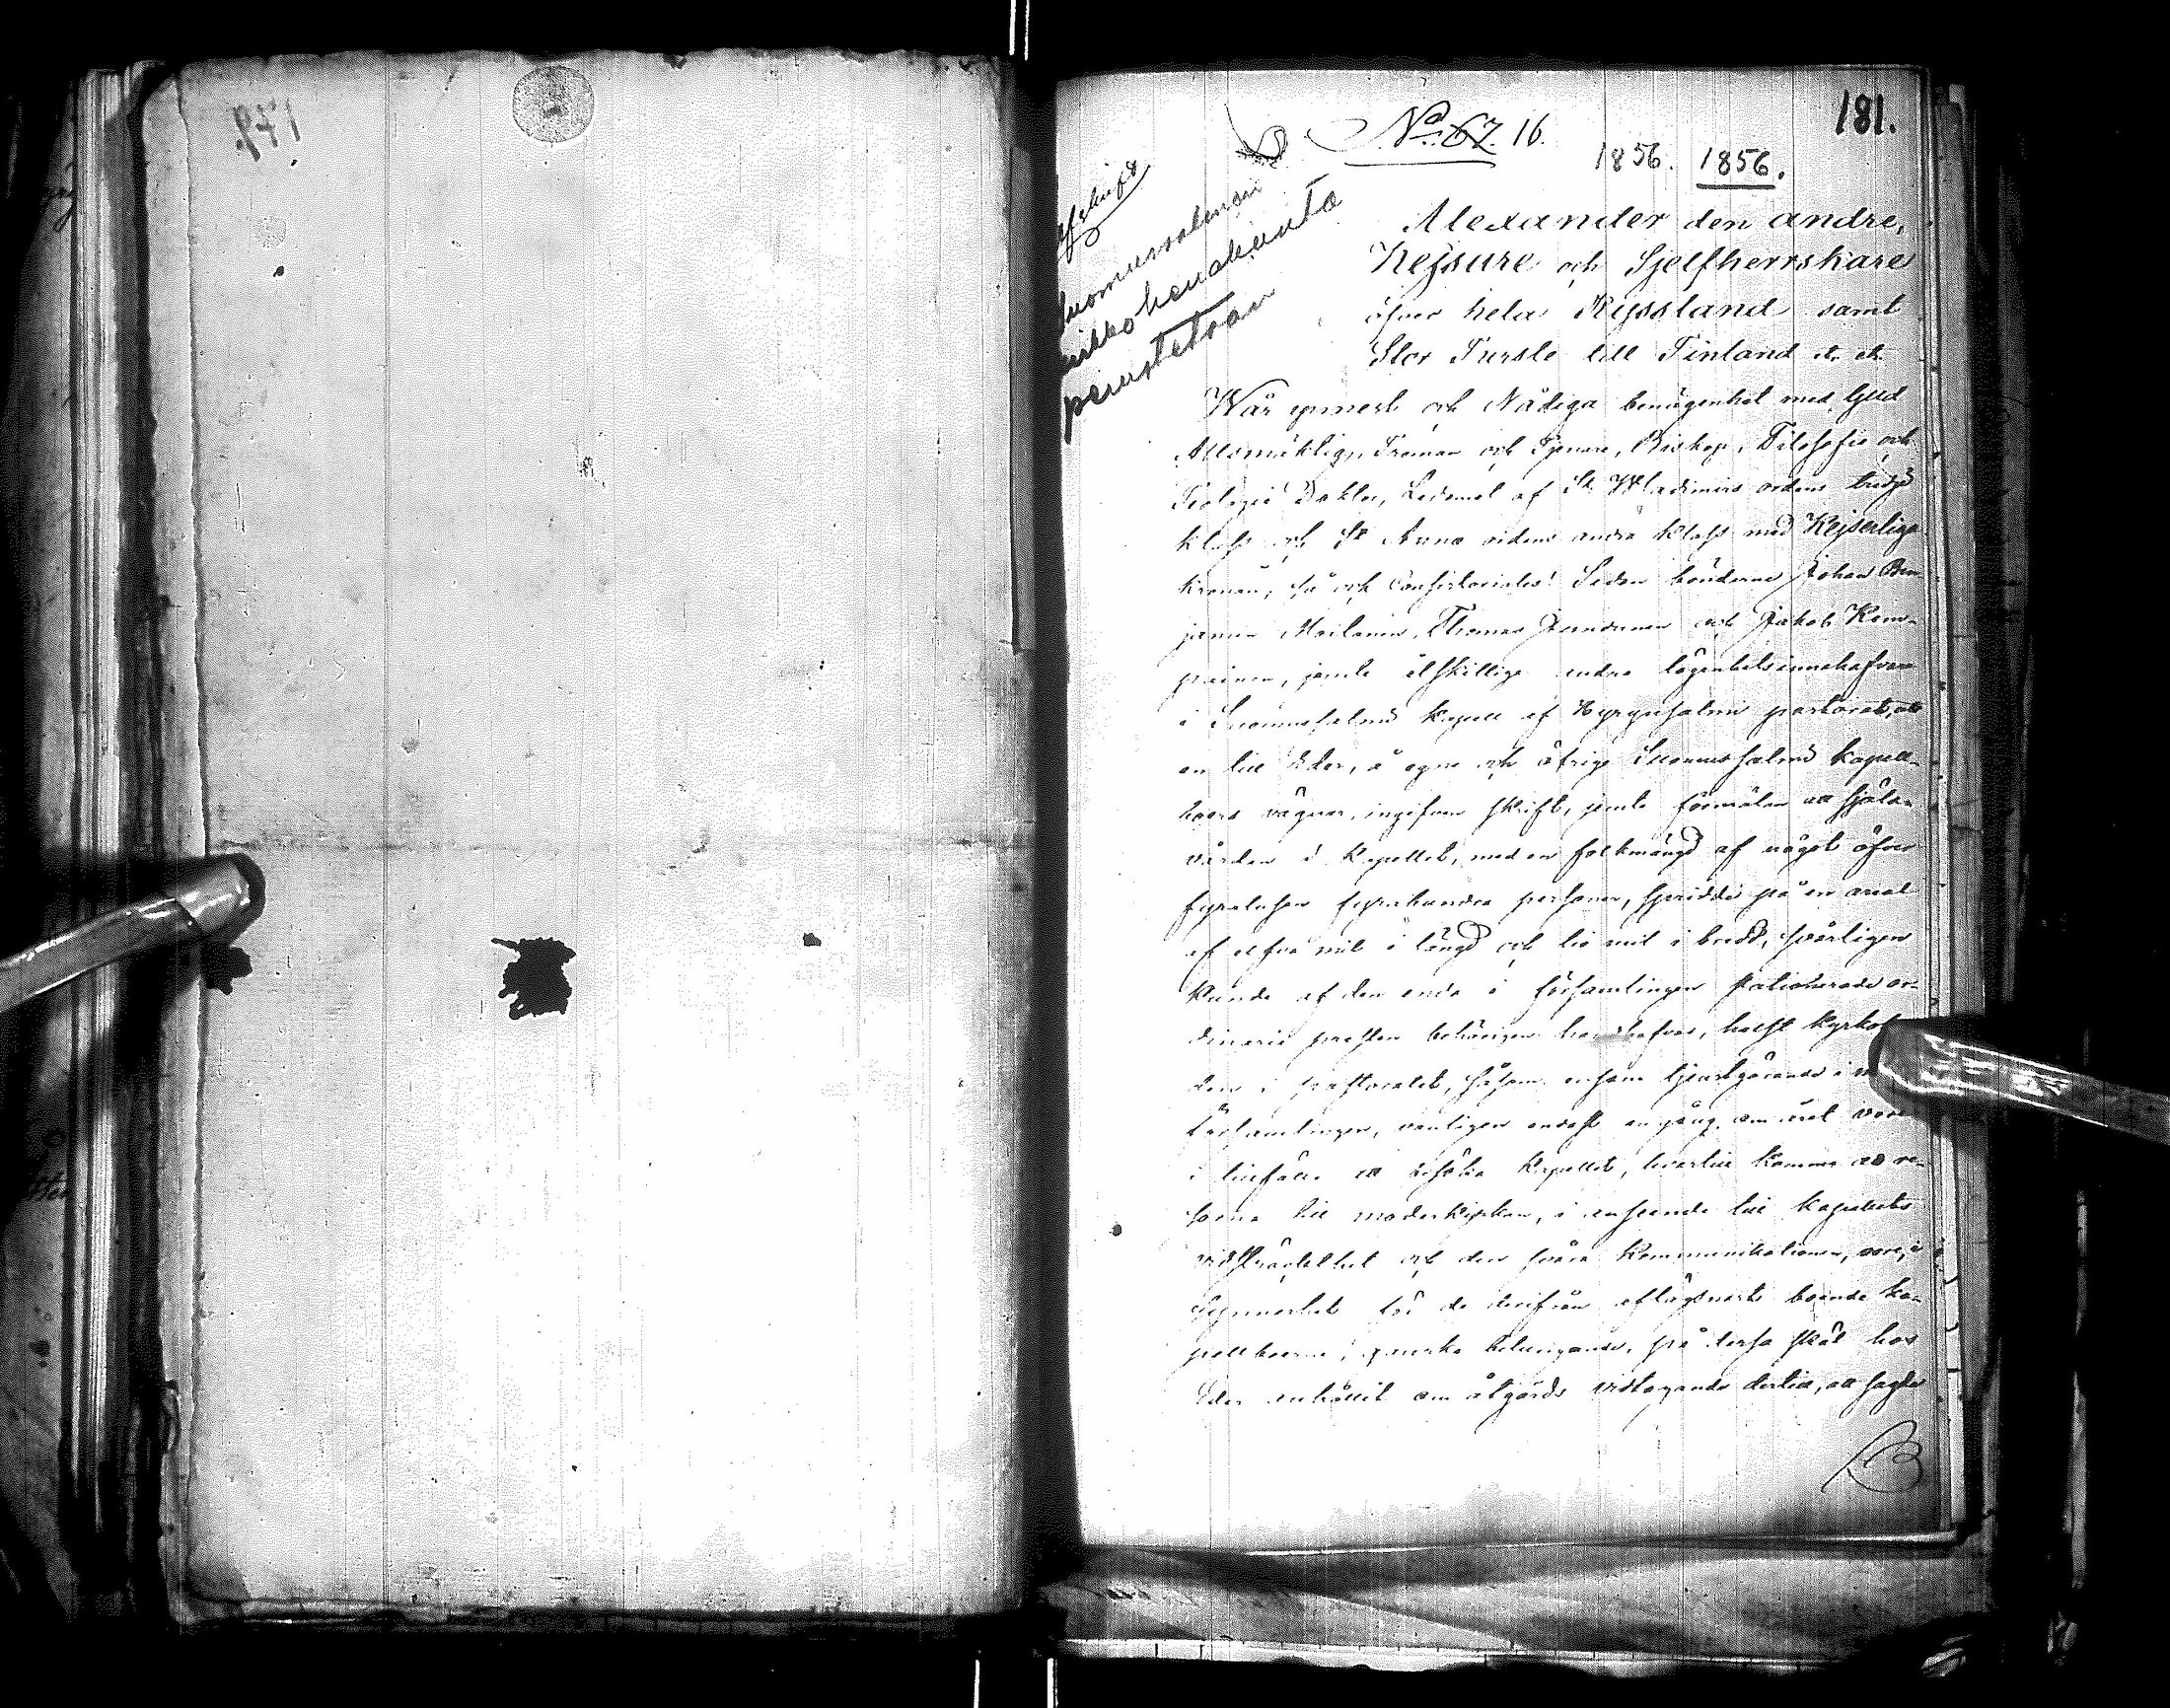 181.
No. 67. 16.
1856. 1856.
Afskrift
Suomussalmen
kirkkoherrakunta
perustetaan
Alexander den andre,
Kejsare och Sjelfherrskare
öfver hela Ryssland samt
Stor Furste till Finland etc. etc.
Wår ynnest och Nådiga benägenhet med Gud
Allsmäktig, Troman och Tjenare, Biskop, Filosofie och
Teologie Doktor, Ledamot af St Wladimirs ordens tredje
klass och St Annæ ordens andra klass med Kejserliga
kronan, så ock Consistoriales! Sedan bönderne Johan Ben-
jamin Moilanen, Thomas Juntunen och Jakob Kem-
painen, jemte åtskillige andra lägenhetsinnehafvare
i Suomussalmi kapell af Hyrynsalmi pastorat, uti
en till Eder, å egna och öfrige Suomussalmi kapell-
boers vägnar, ingifven skrift, jemte förmälan att själa-
vården i kapellet, med en folkmängd af något öfver
fyratusen fyrahundra personer, spridde på en areal
af elfva mil i längd och tio mil i bredd, svårligen
kunde af den enda i församlingen stationerade or-
dinarie presten behörigen handhafvas, helst kyrkoher-
den i pastoratet, såsom ensam tjenstgörande i
församlingen, vanligen endast en gång om året vore
i tillfälle att besöka kapellet, hvartill komme att re-
sorna till moderkyrkan, i anseende till kapellets
vidsträckthet och den svåra kommunikationen, vore, i
synnerhet för de derifrån aflägsnast boende ka-
pellboerne, ganska betungande, på dessa skäl hos
Eder anhållit om åtgärds vidtagande dertill, att sagde